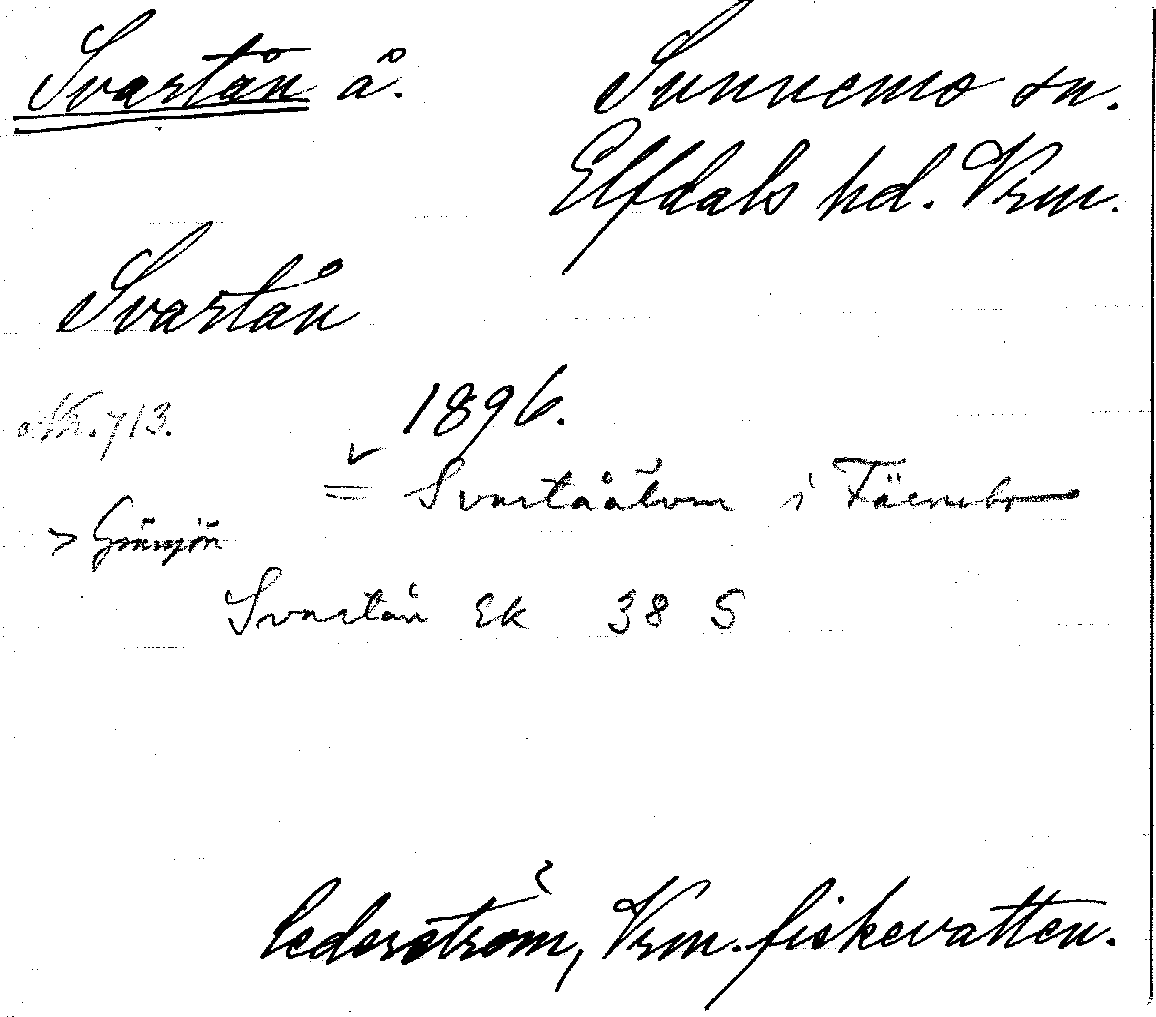 Svartån å.
Sunnemo sn.
Elfdals hd. Vrm.
Svartån
Nr. 713.
1896.
= Svartåälven i Färnebo
> Grässjön
Svartån Ek 38 S
Cederström, Vrm. fiskevatten.